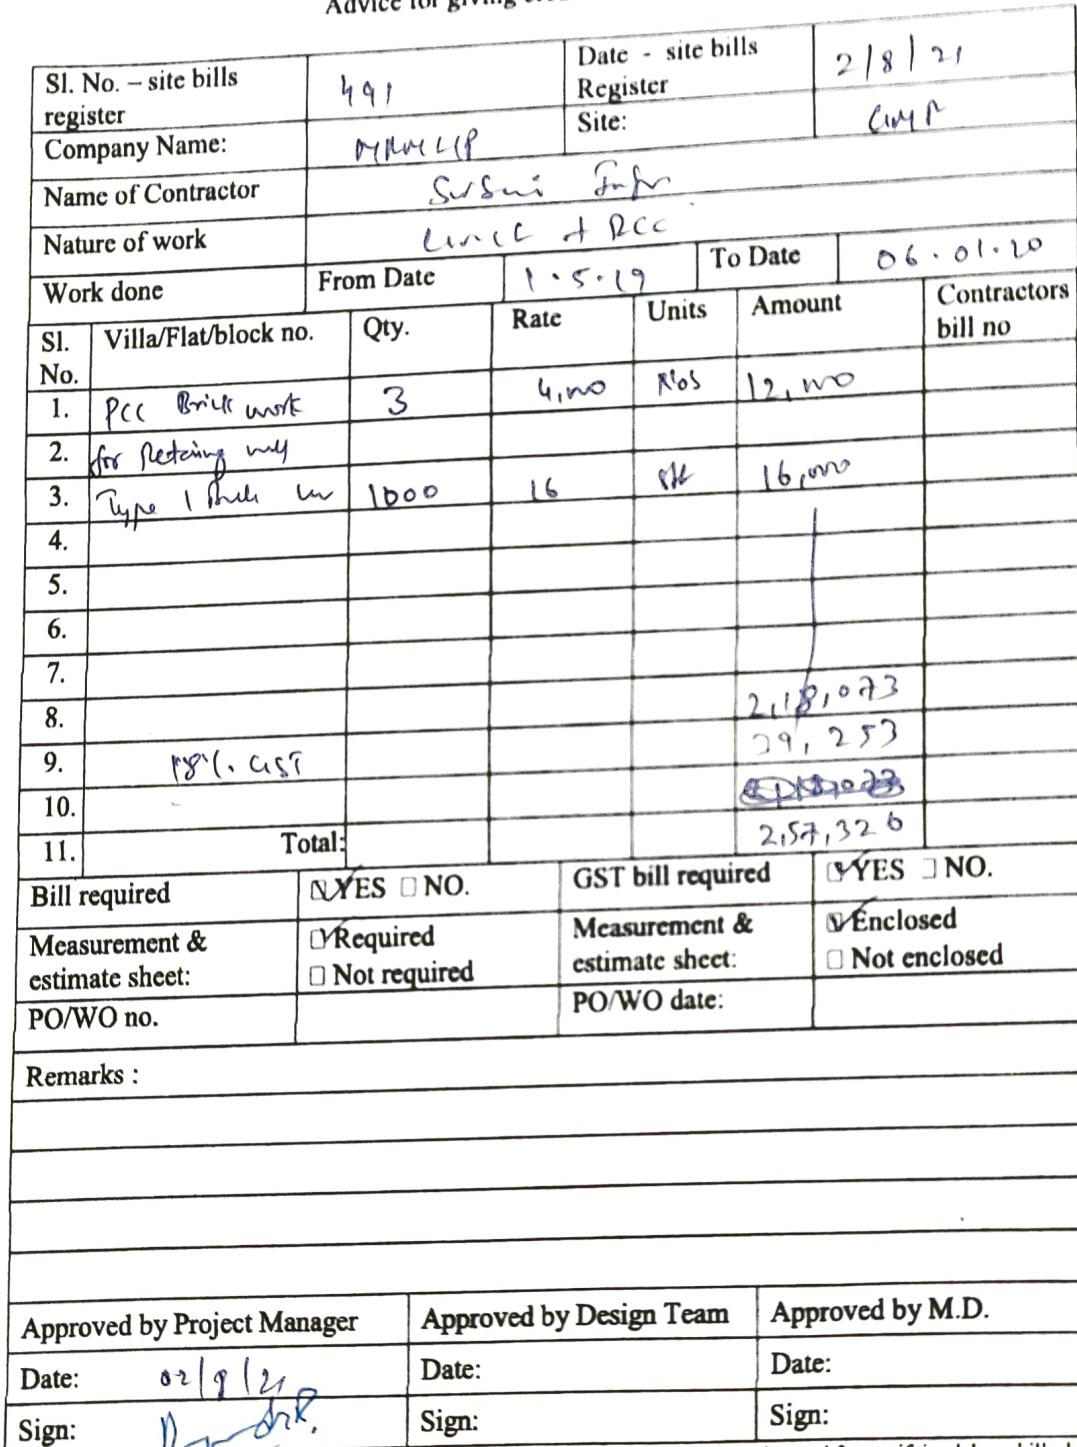 Advice for giving
Sl. No. – site bills register 491 Date - site bills Register 2/8/21
Company Name: MRMLLP Site: GMR
Name of Contractor
Nature of work & RCC
Work done From Date 1.5.19 To Date 06.01.20
Sl. No. Villa/Flat/block no. Qty. Rate Units Amount Contractors bill no
1. PCC Brick work 3 4,000 Nos 12,000
2. for Retaining wall
3. Type 1 1000 16 16,000
4.
5.
6.
7.
8. 2,18,073
9. 18%. GST 39,253
10.
11. Total: 2,57,326
Bill required YES NO. GST bill required YES NO.
Measurement & estimate sheet: Required Not required Measurement & estimate sheet: Enclosed Not enclosed
PO/WO no. PO/WO date:
Remarks :
Approved by Project Manager Approved by Design Team Approved by M.D.
Date: 02/8/21 Date: Date:
Sign: Sign: Sign: